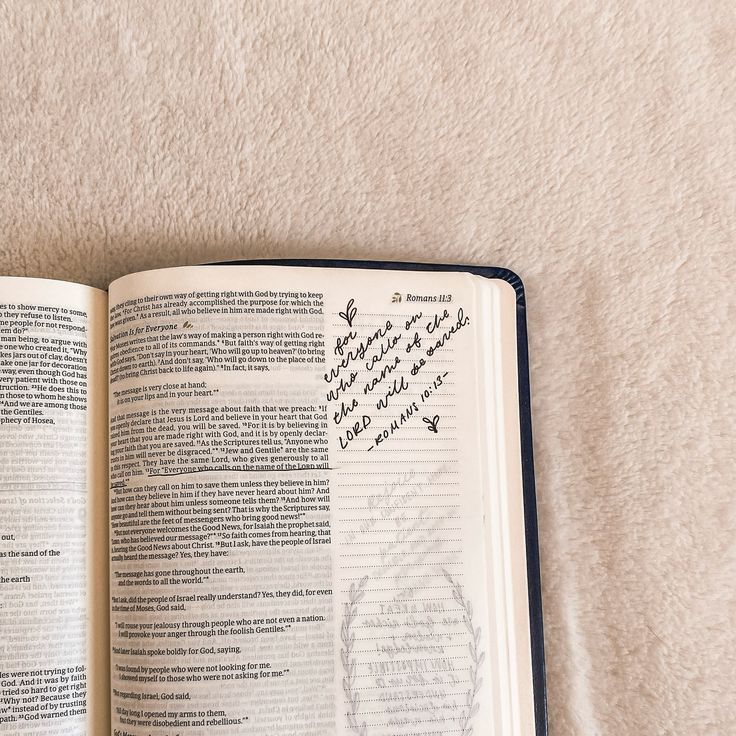 s to show mercy to some,
they refuse to listen.
me people for not respond-
em do?"
man being, to argue with
one who created it, "Why
kes jars out of clay, doesn't
ake one jar for decoration
way, even though God has
very patient with those on
truction. 23He does this to
on those to whom he shows
24And we are among those
the Gentiles.
phecy of Hosea,
out,
as the sand of the
the earth
les were not trying to fol-
God. And it was by faith
tried so hard to get right
32Why not? Because they
w* instead of by trusting
path. 33God warned them
Romans 11:3
they cling to their own way of getting right with God by trying to keep
the law. 4For Christ has already accomplished the purpose for which the
law was given.* As a result, all who believe in him are made right with God.
Salvation Is for Everyone
Moses writes that the law's way of making a person right with God re-
obedience to all of its commands.* 6But faith's way of getting right
God says, "Don't say in your heart, 'Who will go up to heaven?' (to bring
down to earth). 7And don't say, 'Who will go down to the place of the
(to bring Christ back to life again)." 8In fact, it says,
"The message is very close at hand;
it is on your lips and in your heart."*
And that message is the very message about faith that we preach: 9If
you openly declare that Jesus is Lord and believe in your heart that God
raised him from the dead, you will be saved. 10For it is by believing in
your heart that you are made right with God, and it is by openly declar-
ing your faith that you are saved. 11As the Scriptures tell us, "Anyone who
trusts in him will never be disgraced."* 12Jew and Gentile* are the same
in this respect. They have the same Lord, who gives generously to all
who call on him. 13For "Everyone who calls on the name of the LORD will
be saved."*
14But how can they call on him to save them unless they believe in him?
And how can they believe in him if they have never heard about him? And
how can they hear about him unless someone tells them? 15And how will
anyone go and tell them without being sent? That is why the Scriptures say,
"How beautiful are the feet of messengers who bring good news!"*
16But not everyone welcomes the Good News, for Isaiah the prophet said,
"LORD, who has believed our message?"* 17So faith comes from hearing, that
is, hearing the Good News about Christ. 18But I ask, have the people of Israel
actually heard the message? Yes, they have:
"The message has gone throughout the earth,
and the words to all the world."*
19But I ask, did the people of Israel really understand? Yes, they did, for even
in the time of Moses, God said,
"I will rouse your jealousy through people who are not even a nation.
I will provoke your anger through the foolish Gentiles."*
20And later Isaiah spoke boldly for God, saying,
"I was found by people who were not looking for me.
I showed myself to those who were not asking for me."*
21But regarding Israel, God said,
"All day long I opened my arms to them,
but they were disobedient and rebellious."*
for
everyone
who calls on
the name of the
LORD will be saved.
- ROMANS 10:13 -